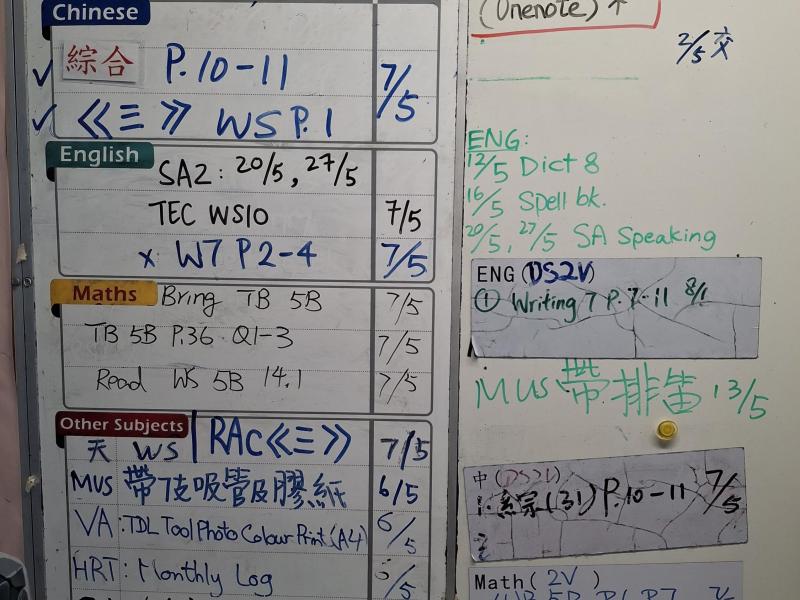 Chinese
綜合 P.10-11
《三》 WS P.1 7/5
English
SA2: 20/5, 27/5
TEC WS10 7/5
x W7 P2-4 7/5
Maths Bring TB 5B 7/5
TB 5B P.36 Q1-3 7/5
Read WS 5B 14.1 7/5
Other Subjects
WS RAC《三》 7/5
MUS 帶7支吸管及膠紙 6/5
VA: TDL Tool Photo Colour Print (A4) 6/5
HRT: Monthly Log 6/5
(Onenote) ↑
2/5 交
ENG:
12/5 Dict 8
16/5 Spell bk.
20/5, 27/5 SA Speaking
ENG (DS2V)
① Writing 7 P.7-11 8/1
MUS 帶排笛 13/5
中 (DS2V)
1. 綜(31) P.10-11 7/5
2.
Math (2V)